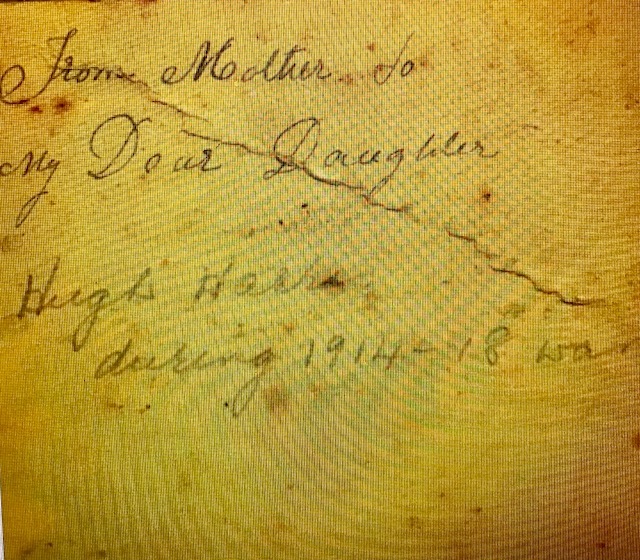 From Mother to
My Dear Daughter
Hugh
during 1914-18 wa